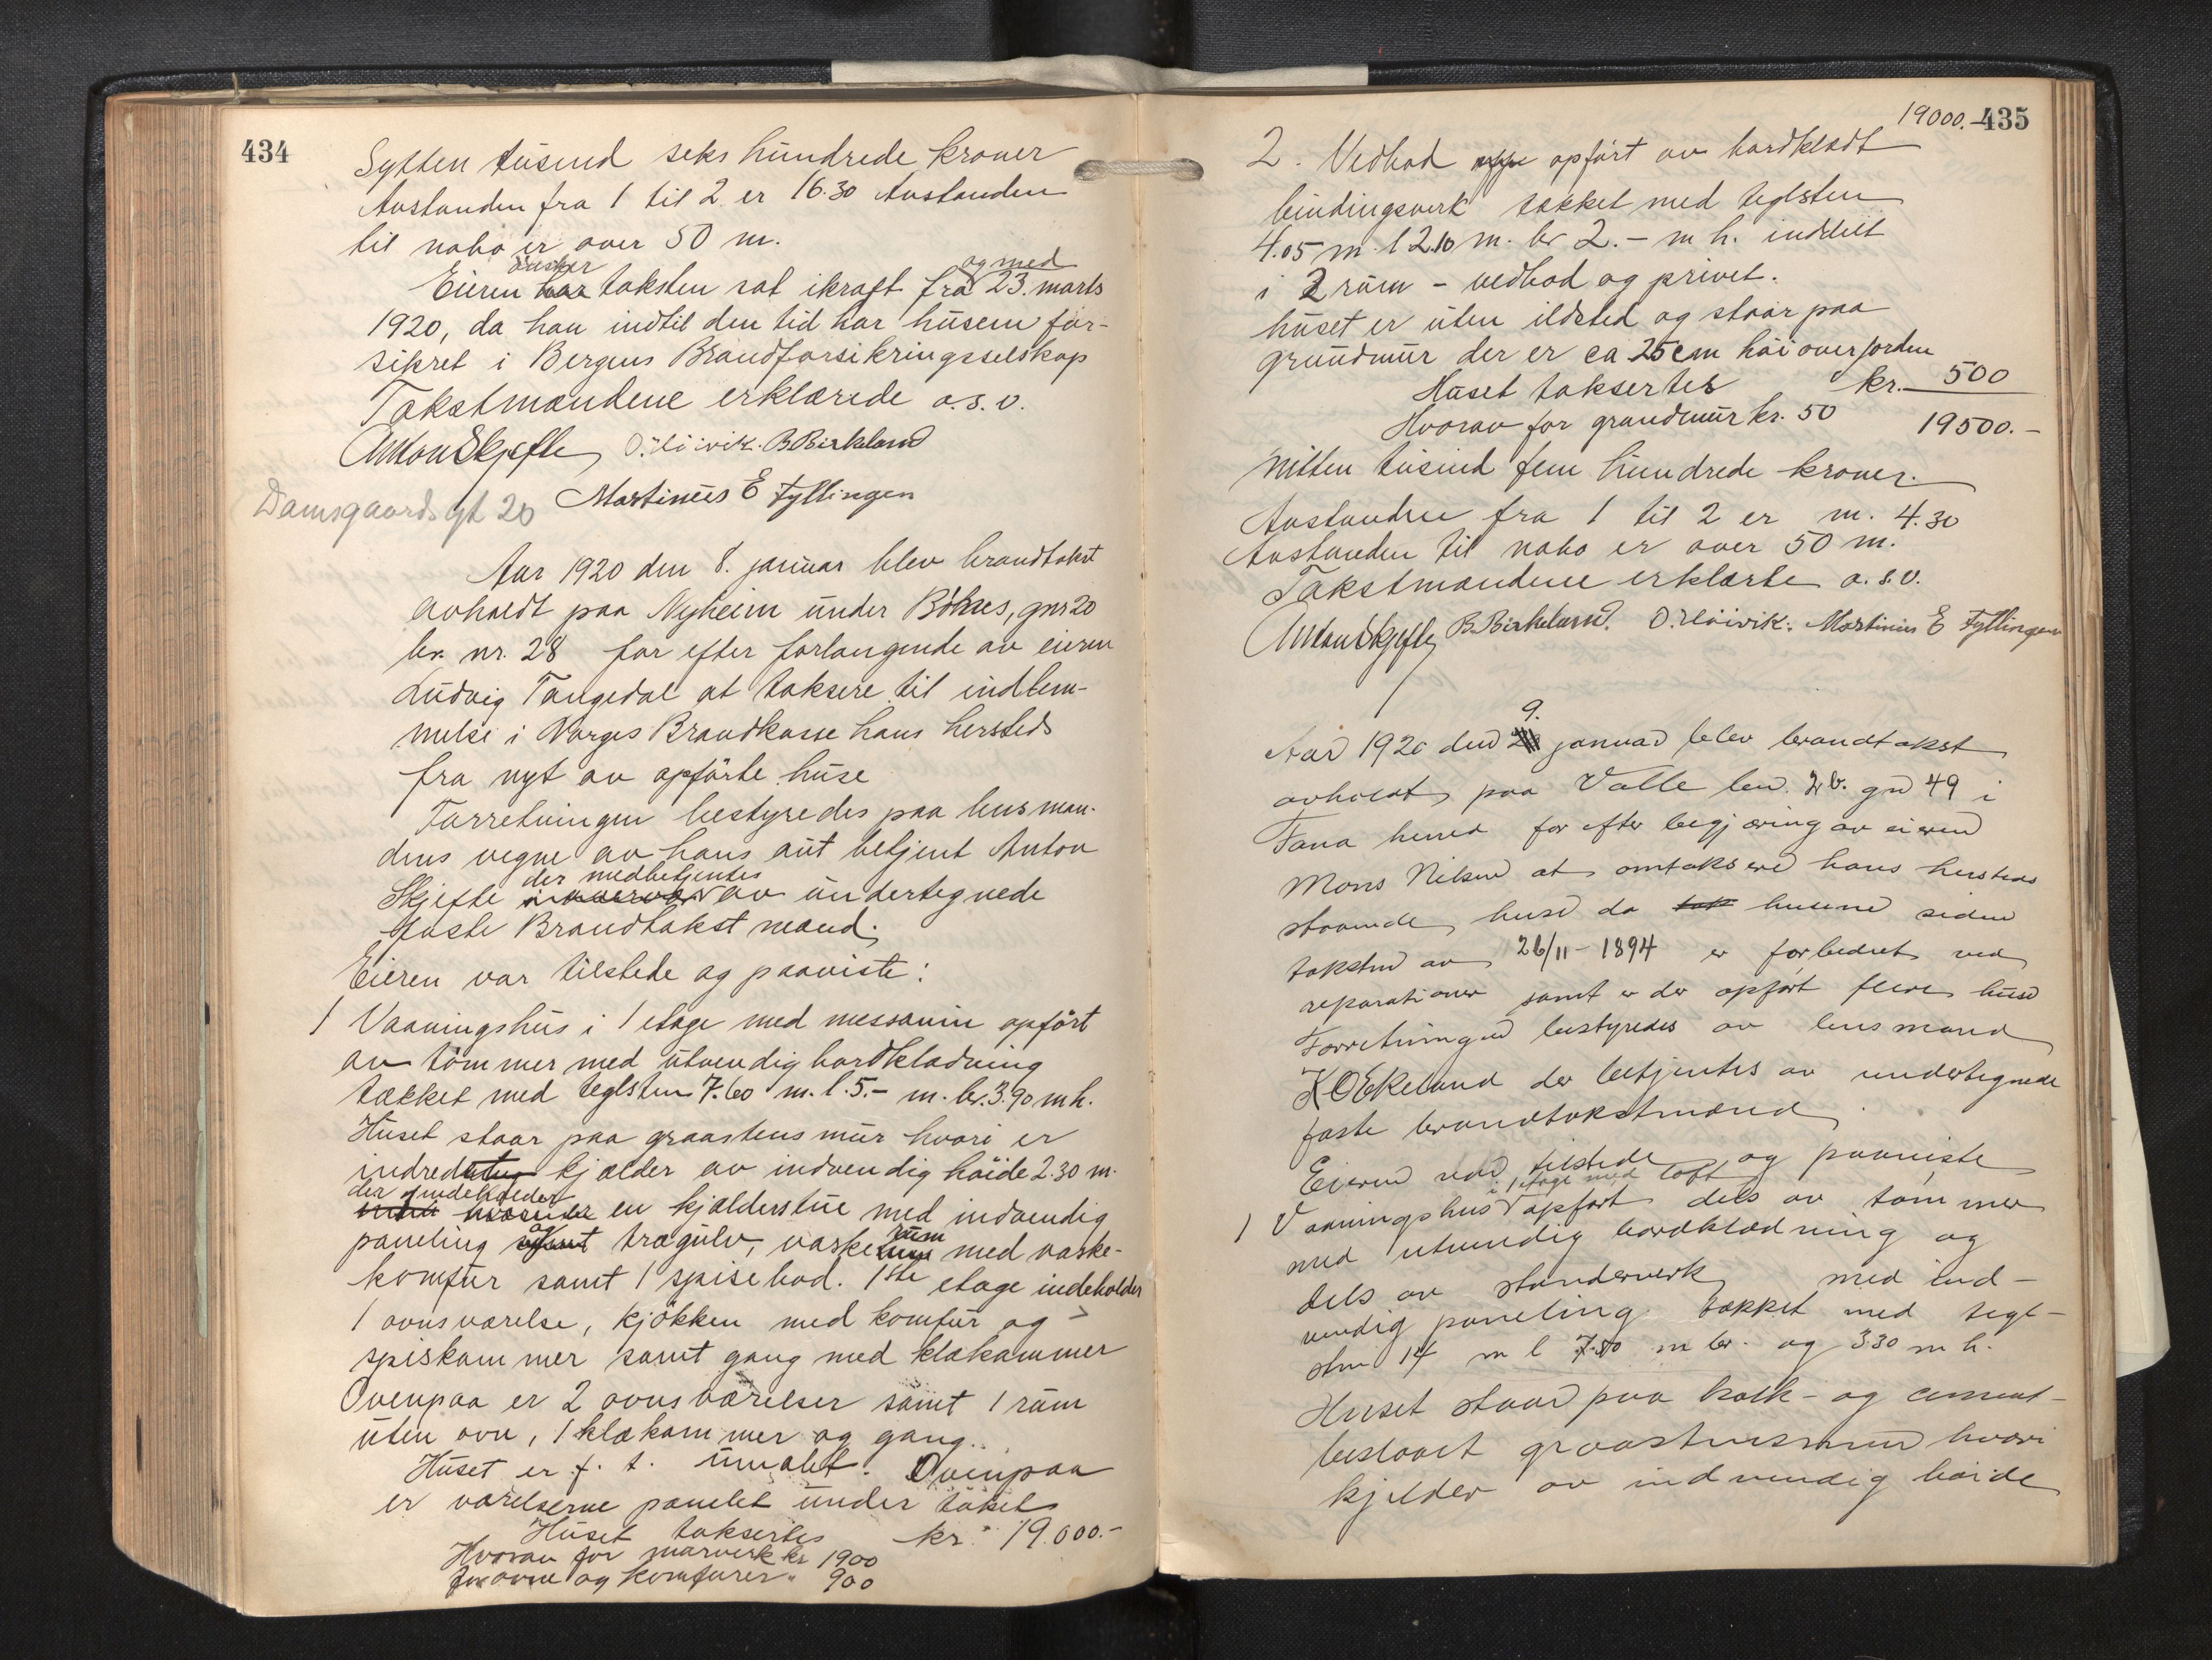 434
Sytten tusind seks hundrede kroner
Avstanden fra 1 til 2 er 16.30 Avstanden
til nabo er over 50 m.
ønsker og med
Eieren har taksten sat ikraft fra 23. marts
1920, da han indtil den tid har husene for-
sikret i Bergens Brandforsikringsselskap
Takstmændene erklærede o.s.v.
Anton Skjefle O. Høivik. B Birkeland
Martinus E Fyllingen
Damsgaards gt 20
Aar 1920 den 8. januar blev brandtakst
avholdt paa Nyheim under Bønes, gnr 20
br. nr. 28 for efter forlangende av eieren
Ludvig Tangedal at taksere til indlem-
melse i Norges Brandkasse hans hersteds
fra nyt av opførte huse
Forretningen bestyredes paa lensman-
dens vegne av hans aut betjent Anton
der medbetjentes
Skjefle av undertegnede
faste Brandtakstmænd.
Eieren var tilstede og paaviste:
1 Vaaningshus i 1 etage med messanin opført
av tømmer med utvendig bordklædning
tækket med teglsten 7.60 m. l. 5.- m. br. 3.90 m h.
Huset staar paa graastensmur hvori er
indredet kjælder av indvendig høide 2.30 m.
der indeholder
en kjælderstue med indvendig
og rum
paneling samt trægulv, vaske med vaske-
komfur samt 1 spisebod. 1ste etage indeholder
1 ovnsværelse, kjøkken med komfur og
spiskammer samt gang med klækammer
Ovenpaa er 2 ovnsværelser samt 1 rum
uten ovn, 1 klækammer og gang.
Huset er f. t. umalet. Ovenpaa
er værelserne panelet under taket
Huset takseres kr. 19.000.-
Hvorav for murverk kr 1900
for ovne og komfurer " 900
19000.- 435
2. Vedbod opført av bordklædt
bindingsverk tækket med teglsten
4.05 m. l 2.10 m. br 2.- m h. inddelt
i 2 rum - vedbod og privet.
huset er uten ildsted og staar paa
grundmur der er ca 25 cm høi over jorden
Huset taksertes kr. 500
Hvorav for grundmur kr. 50 19500.-
Nitten tusind fem hundrede kroner.
Avstanden fra 1 til 2 er m. 4.30
Avstanden til nabo er over 50 m.
Takstmændene erklærte o.s.v.
Anton Skjefle B. Birkeland. O. Høivik. Martinus E Fyllingen
9.
Aar 1920 den januar blev brandtakst
avholdt paa Valle bno. 2b. gno 49 i
Fana herred for efter begjæring av eieren
Mons Nilsen at omtaksere hans hersteds
staaende huse da husene siden
taksten av 26/11 - 1894 er forbedret ved
reparationer samt er der opført flere huse
Forretningen bestyredes av lensmand
K O Ekeland der betjentes av undertegnede
faste brandtakstmænd.
Eieren var tilstede og paaviste
i 1 etage med loft
1 Vaaningshus opført dels av tømmer
med utvendig bordklædning og
dels av standerverk med ind-
vendig paneling tækket med tegl-
sten 14 m l 7.80 m br. og 3.30 m h.
Huset staar paa kalk- og cement-
beslaaet graastensmur hvori
kjelder av indvendig høide